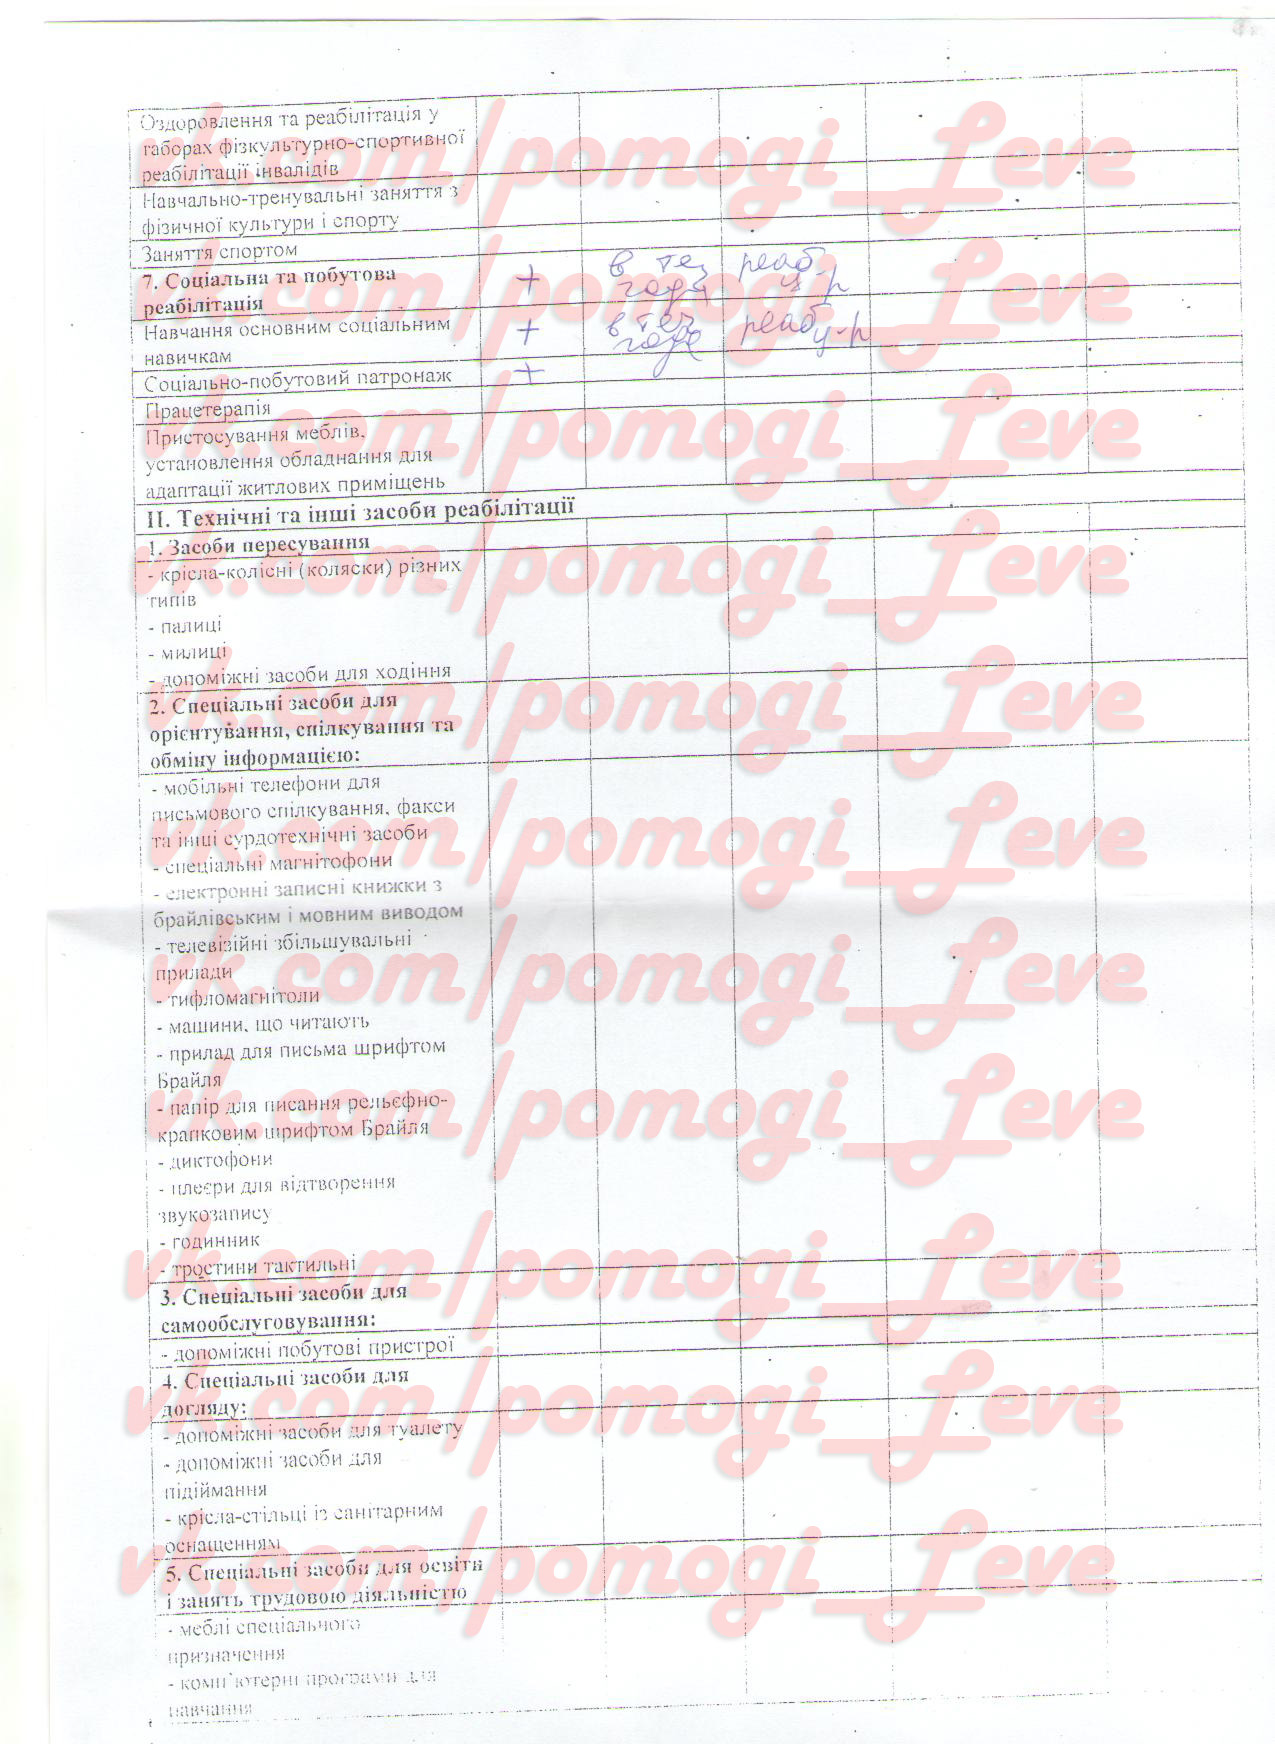 Оздоровлення та реабілітація у
таборах фізкультурно-спортивної
реабілітації інвалідів
Навчально-тренувальні заняття з
фізичної культури і спорту
Заняття спортом
7. Соціальна та побутова
реабілітація
+ в теч реаб
года ц-р
Навчання основним соціальним
навичкам
+ в теч реаб
года ц-р
Соціально-побутовий патронаж +
Працетерапія
Пристосування меблів,
установлення обладнання для
адаптації житлових приміщень
II. Технічні та інші засоби реабілітації
1. Засоби пересування
- крісла-колісні (коляски) різних
типів
- палиці
- милиці
- допоміжні засоби для ходіння
2. Спеціальні засоби для
орієнтування, спілкування та
обміну інформацією:
- мобільні телефони для
письмового спілкування, факси
та інші сурдотехнічні засоби
- спеціальні магнітофони
- електронні записні книжки з
брайлівським і мовним виводом
- телевізійні збільшувальні
прилади
- тифломагнітоли
- машини, що читають
- прилад для письма шрифтом
Брайля
- папір для писання рельєфно-
крапковим шрифтом Брайля
- диктофони
- плеєри для відтворення
звукозапису
- годинник
- тростини тактильні
3. Спеціальні засоби для
самообслуговування:
- допоміжні побутові пристрої
4. Спеціальні засоби для
догляду:
- допоміжні засоби для туалету
- допоміжні засоби для
підіймання
- крісла-стільці із санітарним
оснащенням
5. Спеціальні засоби для освіти
і занять трудовою діяльністю
- меблі спеціального
призначення
- комп'ютерні програми для
навчання
vk.com/pomogi_Leve
vk.com/pomogi_Leve
vk.com/pomogi_Leve
vk.com/pomogi_Leve
vk.com/pomogi_Leve
vk.com/pomogi_Leve
vk.com/pomogi_Leve
vk.com/pomogi_Leve
vk.com/pomogi_Leve
vk.com/pomogi_Leve
vk.com/pomogi_Leve